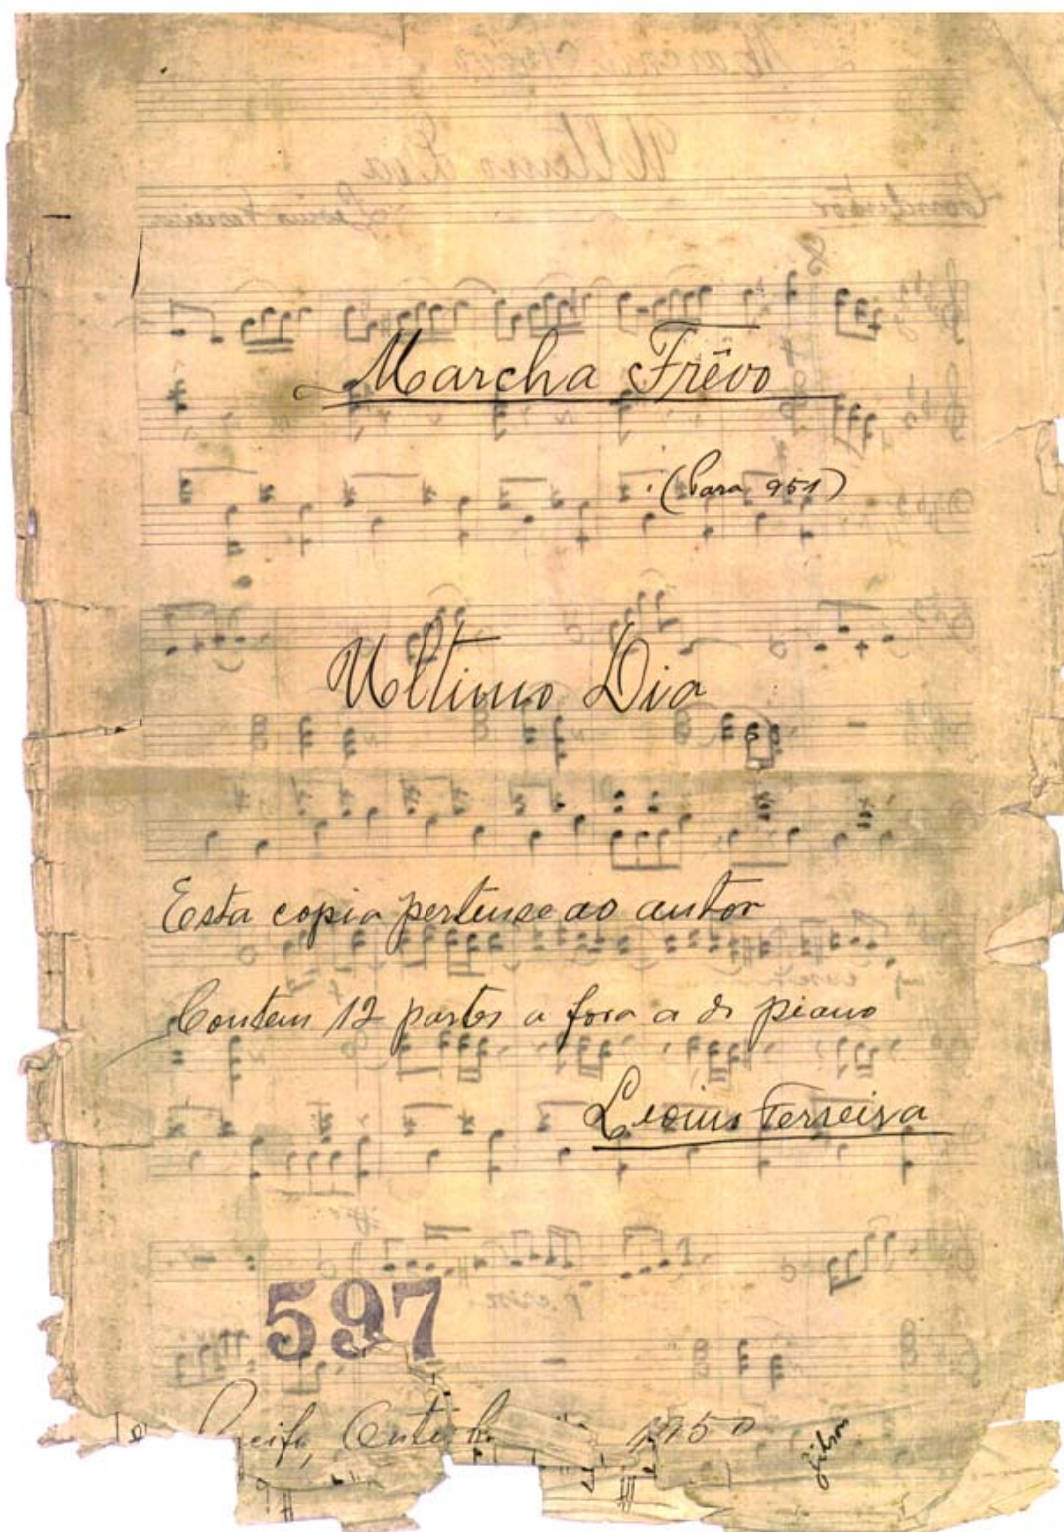 Marcha Frêvo
(Para 951)
Ultimo Dia
Esta copia pertense ao autor
Contem 12 partes a fora a do piano
Levino Ferreira
597
Recife, 1950